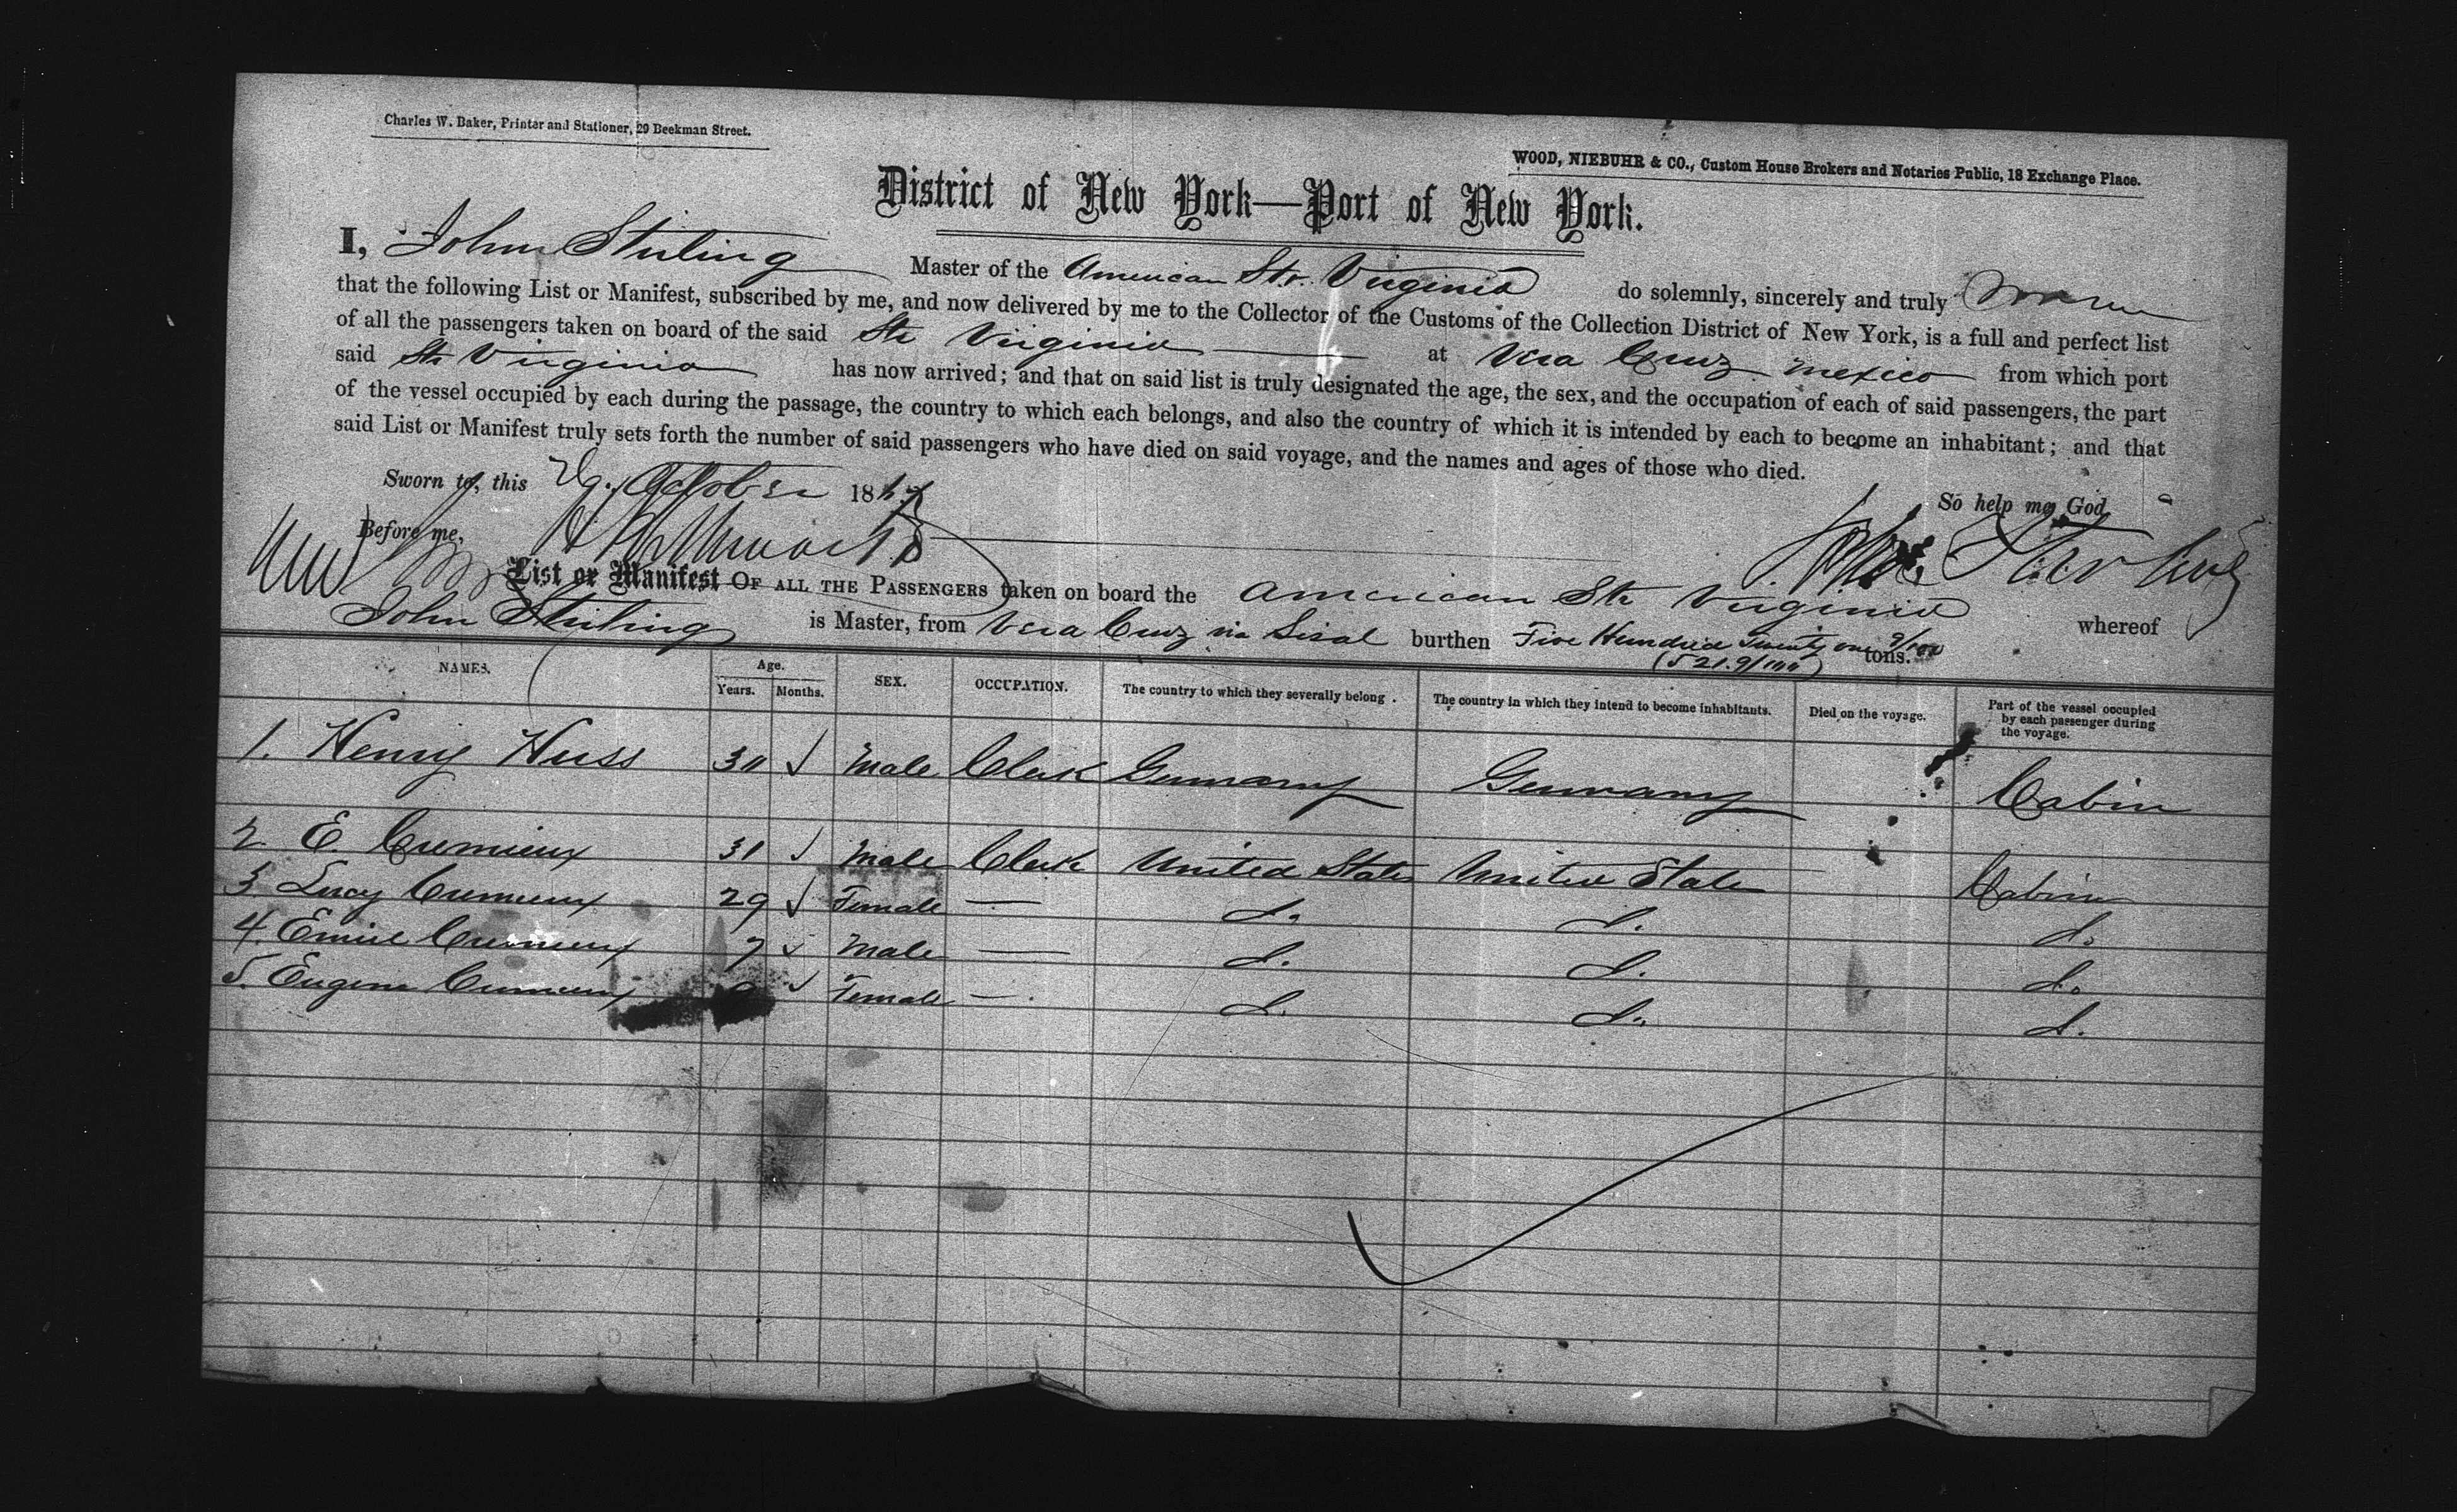 Charles W. Baker, Printer and Stationer, 29 Beekman Street.
WOOD, NIEBUHR & CO., Custom House Brokers and Notaries Public, 18 Exchange Place.
District of New York—Port of New York.
I, John Stirling Master of the American Str. Virginia do solemnly, sincerely and truly swear
that the following List or Manifest, subscribed by me, and now delivered by me to the Collector of the Customs of the Collection District of New York, is a full and perfect list
of all the passengers taken on board of the said Str Virginia at Vera Cruz Mexico from which port
said Str Virginia has now arrived; and that on said list is truly designated the age, the sex, and the occupation of each of said passengers, the part
of the vessel occupied by each during the passage, the country to which each belongs, and also the country of which it is intended by each to become an inhabitant; and that
said List or Manifest truly sets forth the number of said passengers who have died on said voyage, and the names and ages of those who died.
Sworn to, this October 186
So help me God
Before me,
List or Manifest OF ALL THE PASSENGERS taken on board the American Str Virginia whereof
John Stirling is Master, from Vera Cruz via Sisal burthen Five Hundred Twenty one 9/100 tons.
(521.9/100)
NAMES. Age. SEX. OCCUPATION. The country to which they severally belong. The country in which they intend to become inhabitants. Died on the voyage. Part of the vessel occupied by each passenger during the voyage.
Years. Months.
1. Henry Huss Male Clerk Germany Germany Cabin
2 E Cremieux 31 Male Clerk United States United State Cabin
3 Lucy Cremieux 29 Female — d. d. d.
4. Emile Cremieux 7 Male — d. d. d.
5. Eugene Cremieux Female — d. d. d.